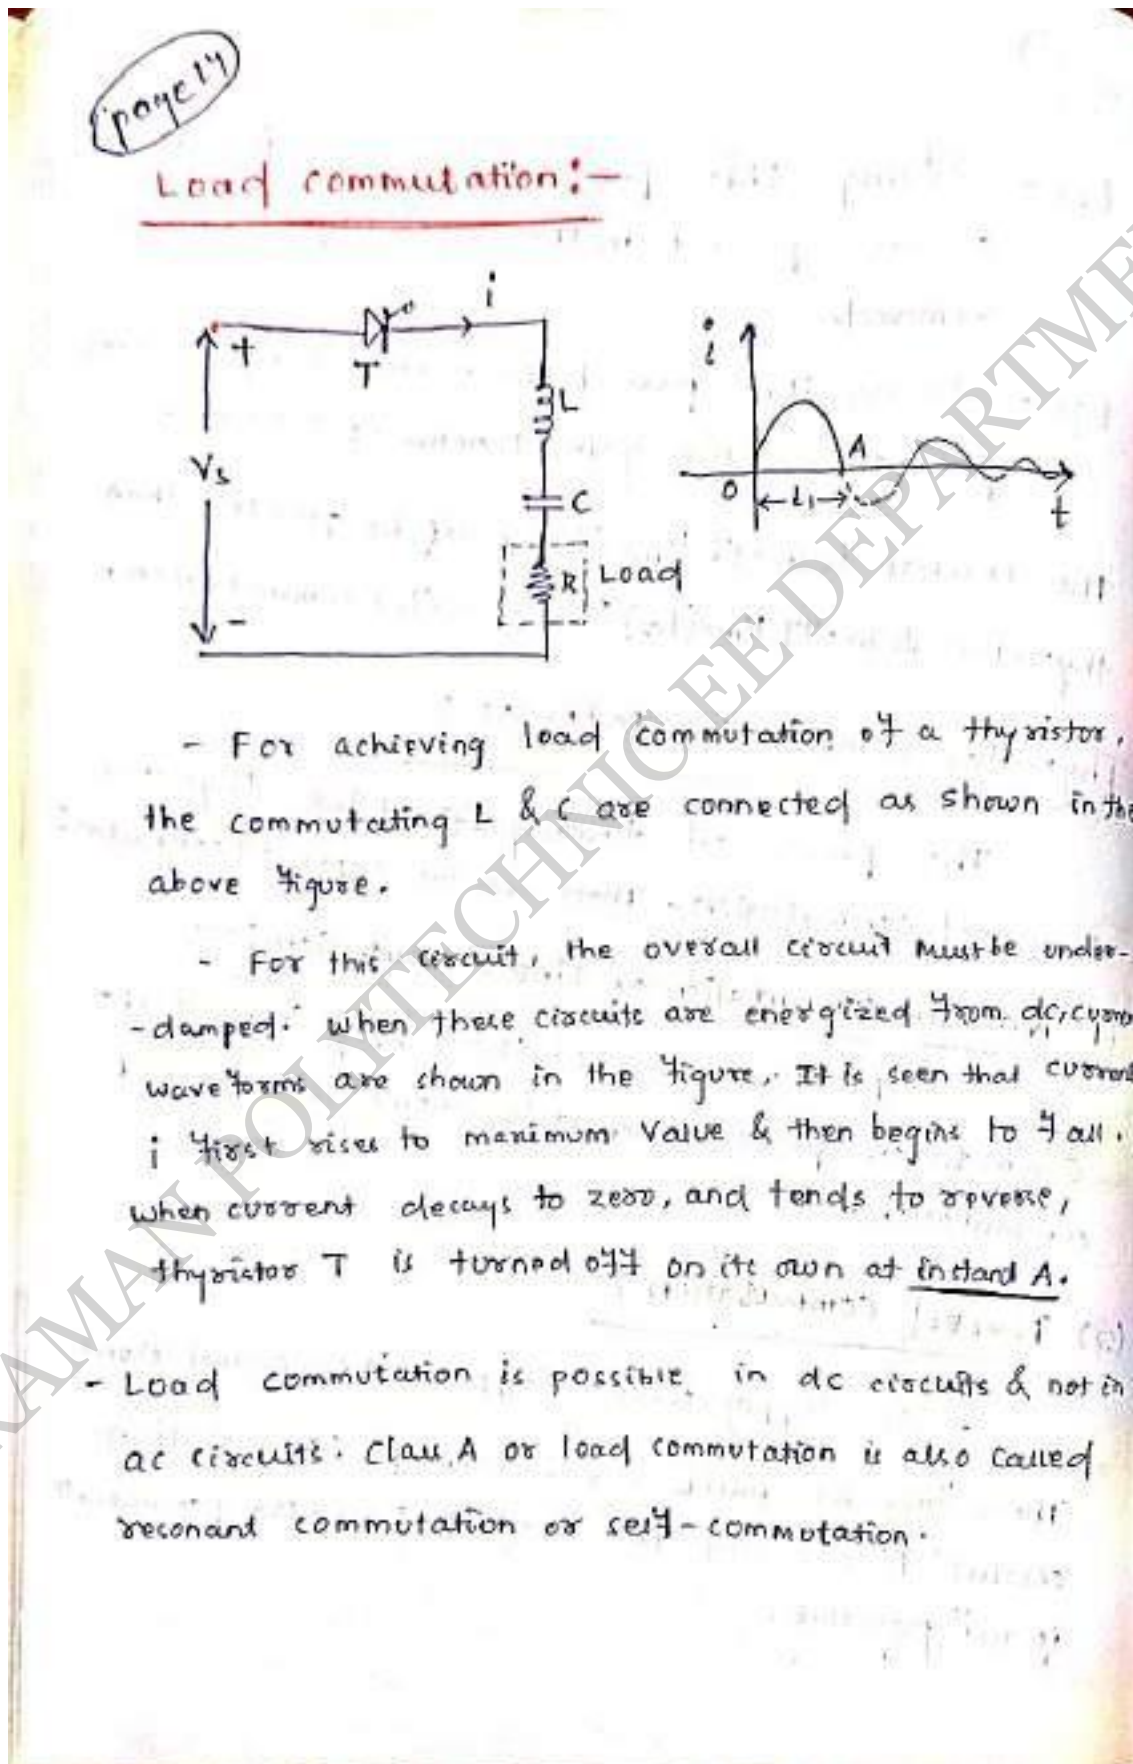 page 14
Load commutation:-
i
+
T
L
Vs
C
R
Load
-
i
A
0
t1
t
- For achieving load commutation of a thyristor,
the commutating L & C are connected as shown in the
above figure.
- For this circuit, the overall circuit must be under-
-damped. when these circuits are energized from dc,
waveforms are shown in the figure. It is seen that current
i first rises to maximum value & then begins to fall.
when current decays to zero, and tends to reverse,
thyristor T is turned off on its own at instant A.
- Load commutation is possible in dc circuits & not in
ac circuits. Class A or load commutation is also called
resonant commutation or self-commutation.
RAMAN POLYTECHNIC EE DEPARTME